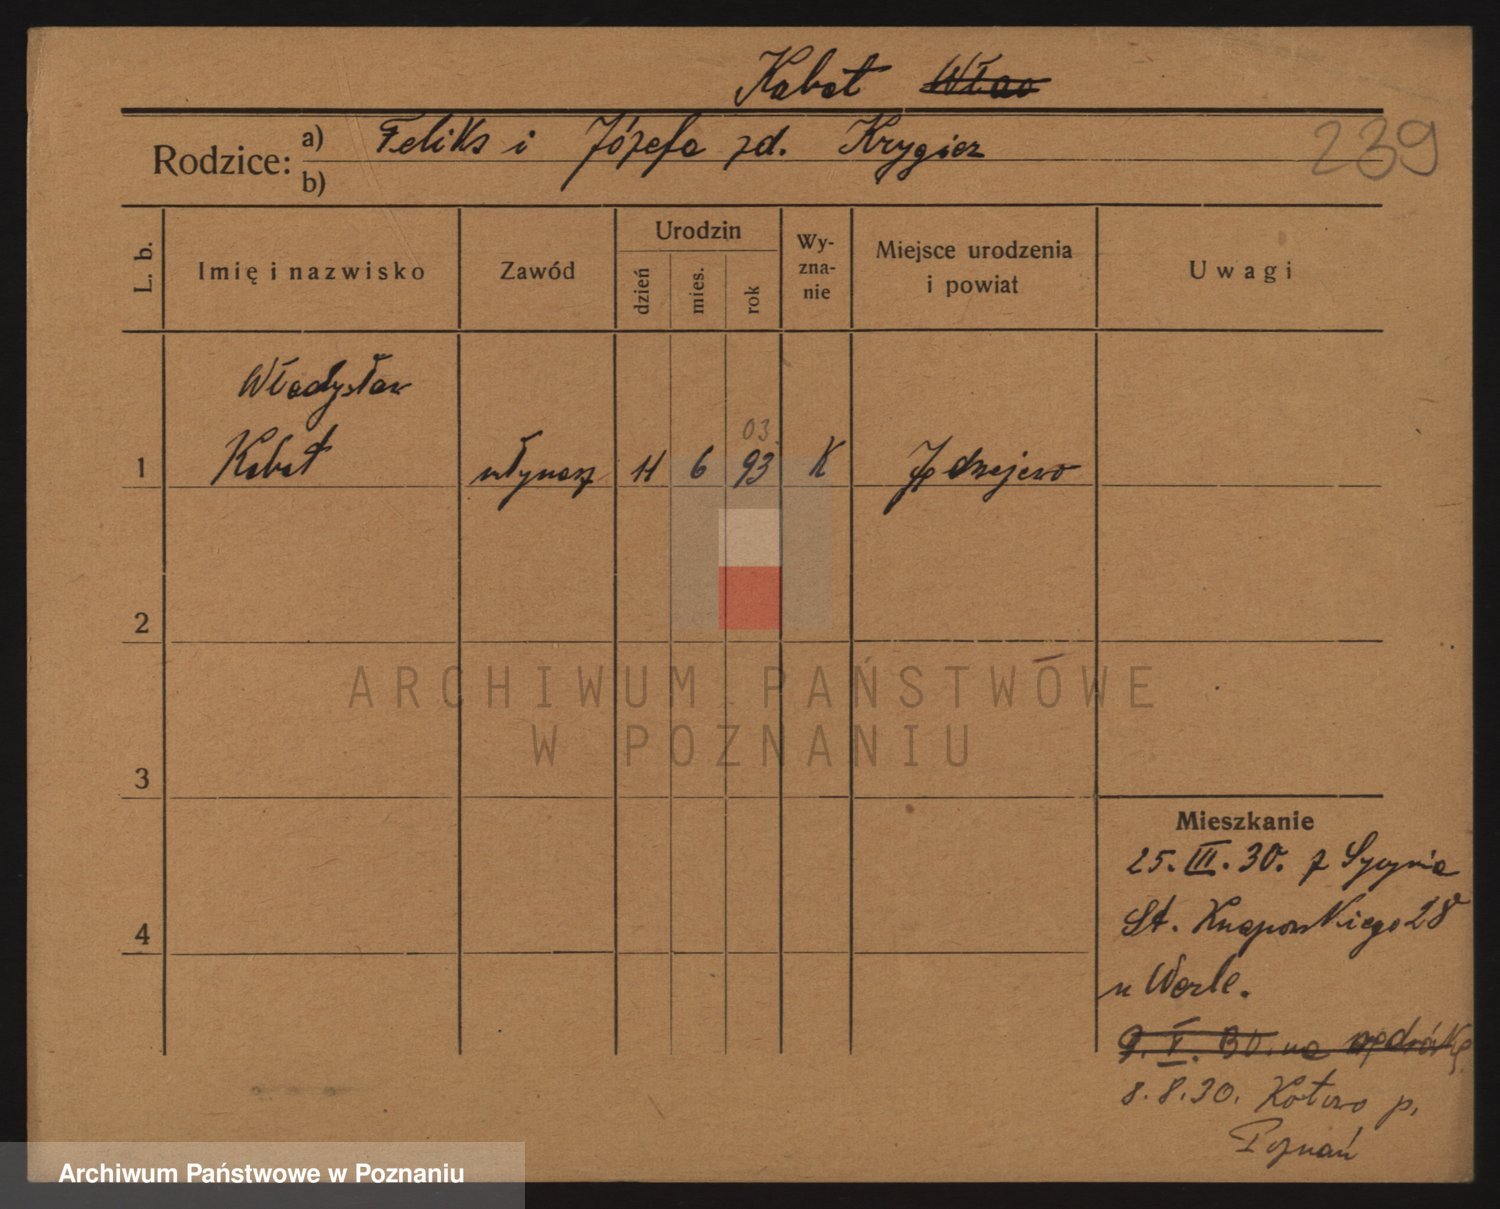 Kabat Wład
Rodzice: a) Feliks i Józefa zd. Krygier
b)
239
L. b.
Imię i nazwisko
Zawód
Urodzin
dzień
mies.
rok
Wy-
zna-
nie
Miejsce urodzenia
i powiat
Uwagi
Władysław
03.
1 Kabat młynarz 11 6 93 K Jędrzejewo
2
3
4
Mieszkanie
25. III. 30. z
St. Knapowskiego 28
u
9. V. 30. na wędrówkę
8.8.30. Kotowo p.
Poznań
ARCHIWUM PAŃSTWOWE
W POZNANIU
Archiwum Państwowe w Poznaniu